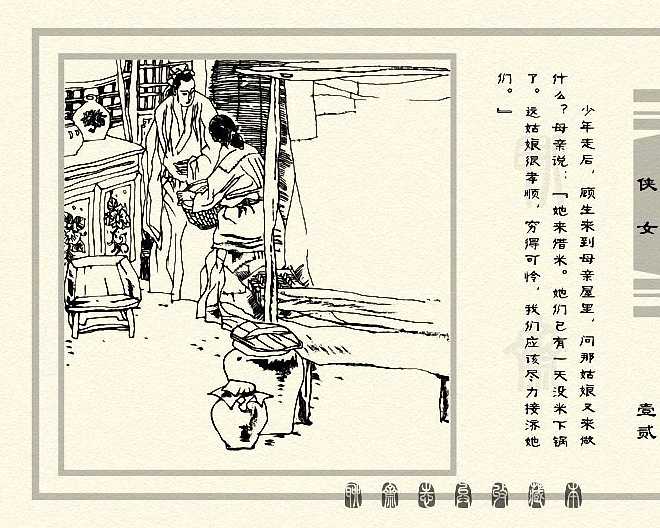 少年走后，顾生来到母亲屋里，问那姑娘又来做
什么？母亲说：“她来借米。她们已有一天没米下锅
了。这姑娘很孝顺，穷得可怜，我们应该尽力接济她
们。”
侠女
壹贰
聊斋志异收藏本